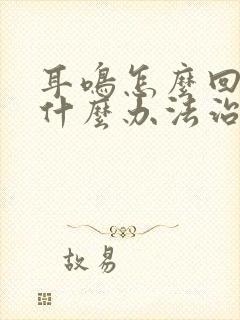 耳鳴怎麼回
什麼办法治
故易